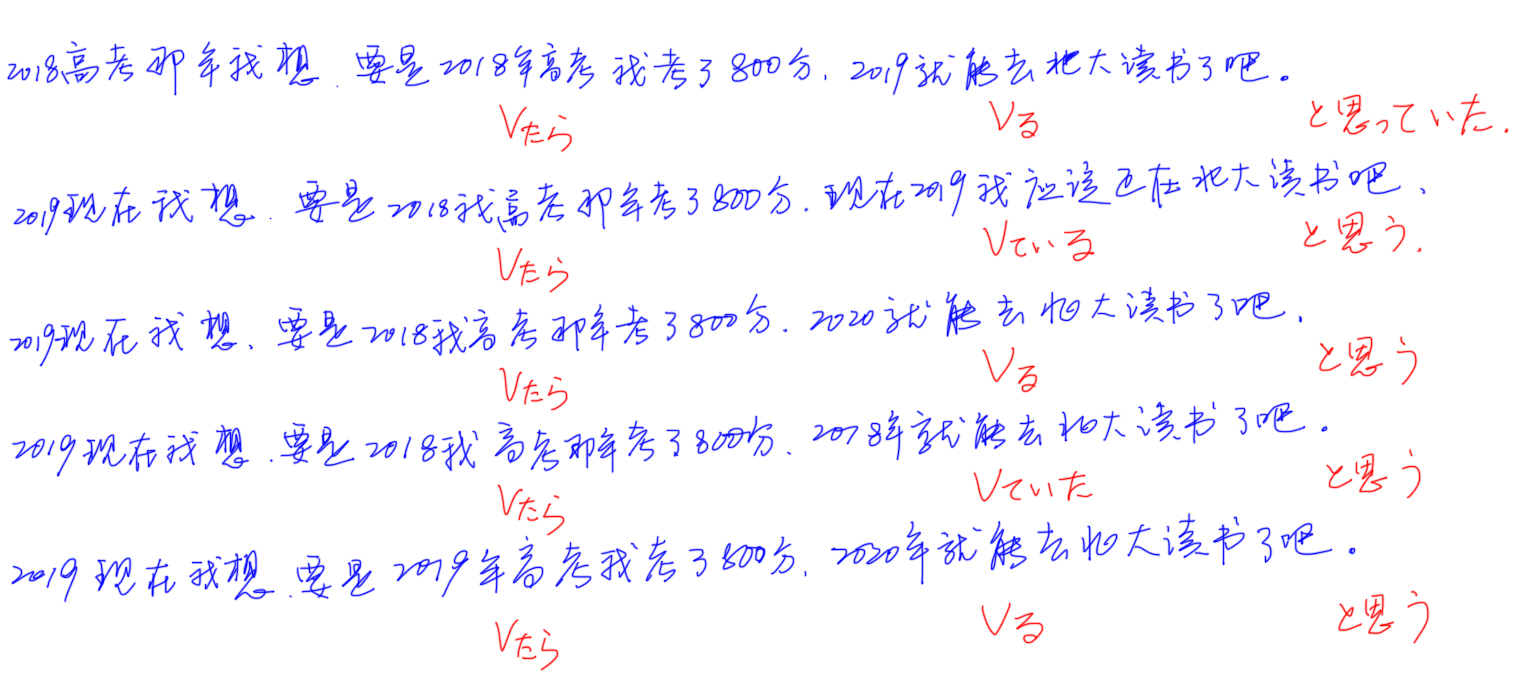 2018高考那年我想.要是2018年高考我考了800分,2019就能去北大读书了吧。
Vたら Vる と思っていた.
2019现在我想.要是2018我高考那年考了800分,现在2019我应该正在北大读书吧、
Vたら Vている と思う.
2019现在我想、要是2018我高考那年考了800分,2020就能去北大读书了吧,
Vたら Vる と思う
2019现在我想.要是2018我高考那年考了800分,2018年就能去北大读书了吧。
Vたら Vていた と思う
2019现在我想.要是2019年高考我考了800分,2020年就能去北大读书了吧。
Vたら Vる と思う